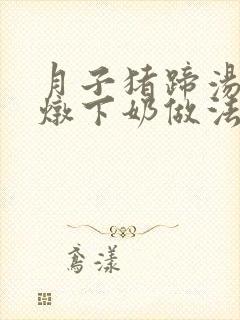 月子猪蹄汤
燉下奶做法
鸢漾